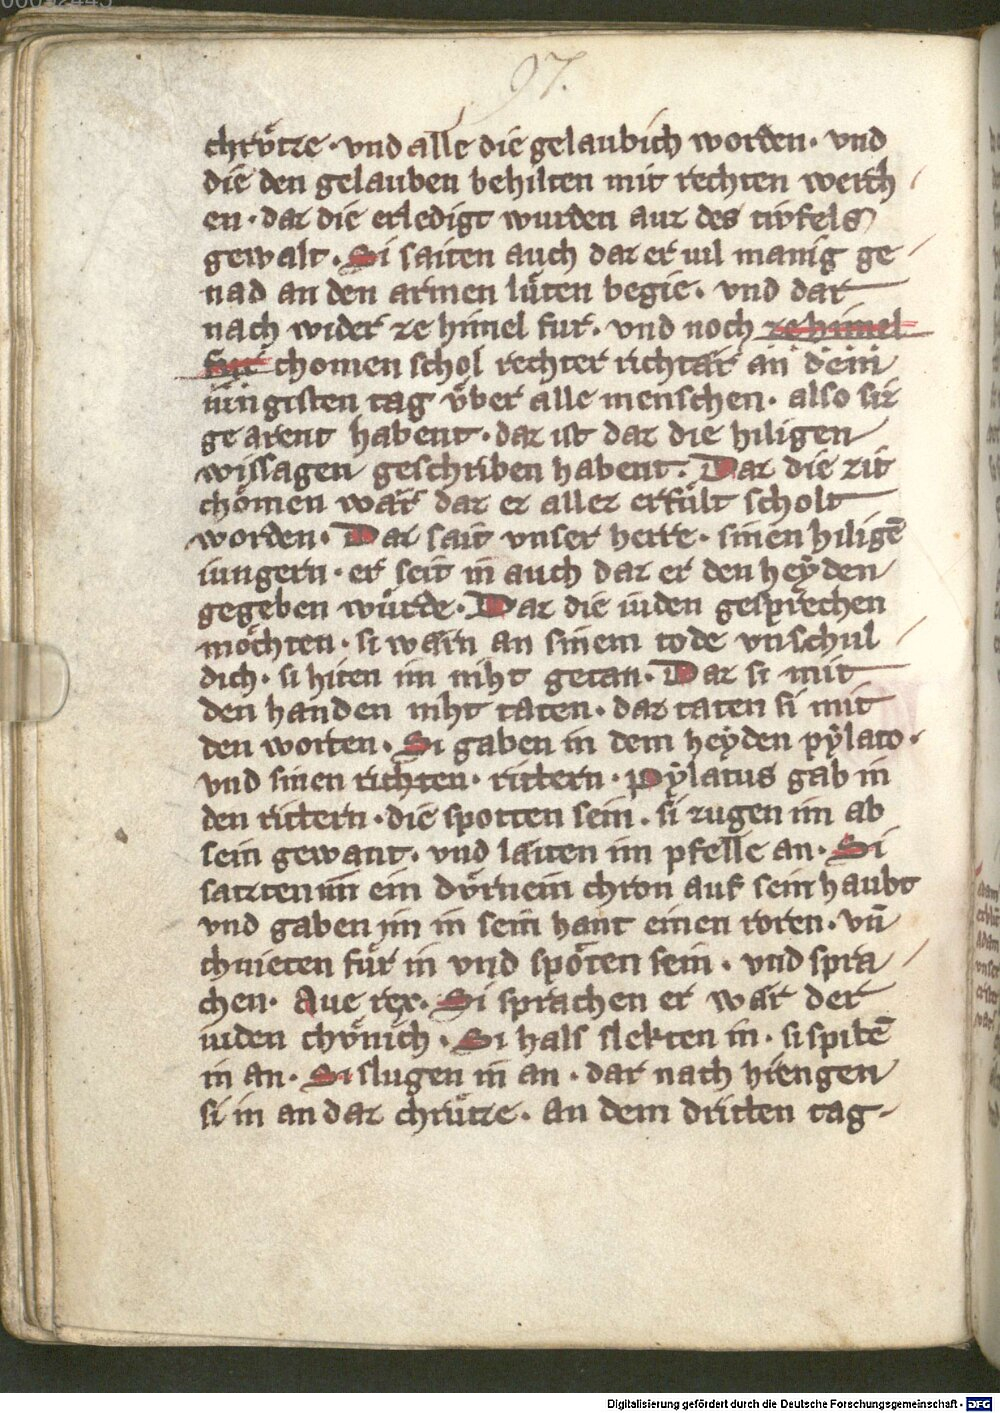 97.
chrv̊tze · vnd alle die gelaubich worden · vnd
die den gelauben behilten mit rechten werch
en · daz die erledigt wurden auz des tiyfels
gewalt · Si saiten auch daz er uil manig ge
nad an den armen lůten begie · vnd dar
nach wider ze himel fur · vnd noch ze himel
fur chomen schol rechter richtår an dem
iungisten tag v̊ber alle menschen · also sie
ge arent habent · daz ist daz die hiligen
wissagen geschriben habent · Daz die zit
chömen wår daz er allez erfůlt scholt
worden · Daz sait vnser herre · sinen hiligē
iungern · er seit in auch daz er den heẏden
gegeben wůrde · Daz die iuden gesprechen
möchten · si warn an sinem tode vnschul
dich · si hiten im niht getan · Daz si mit
den handen niht taten · daz taten si mit
den worten · Si gaben in dem heẏden pẏlato ·
vnd sinen richten · rittern · pẏlatus gab in
den rittern · die spotten sein · si zugen im ab
sein gewant · vnd laiten im pfelle an · Si
satzten im ein dörnein chron auf sein haubt
vnd gaben im in sein hant einen roren · vn̄
chnieten fůr in vnd spöten sein · vnd spra
chen · Aue rex · Si sprachen er wår der
iuden chv̊nich · Si hals slekten in · si spibē
in an · Si slugen in an · dar nach hiengen
si in an daz chrůtze · an dem dritten tag
Digitalisierung gefördert durch die Deutsche Forschungsgemeinschaft - DFG